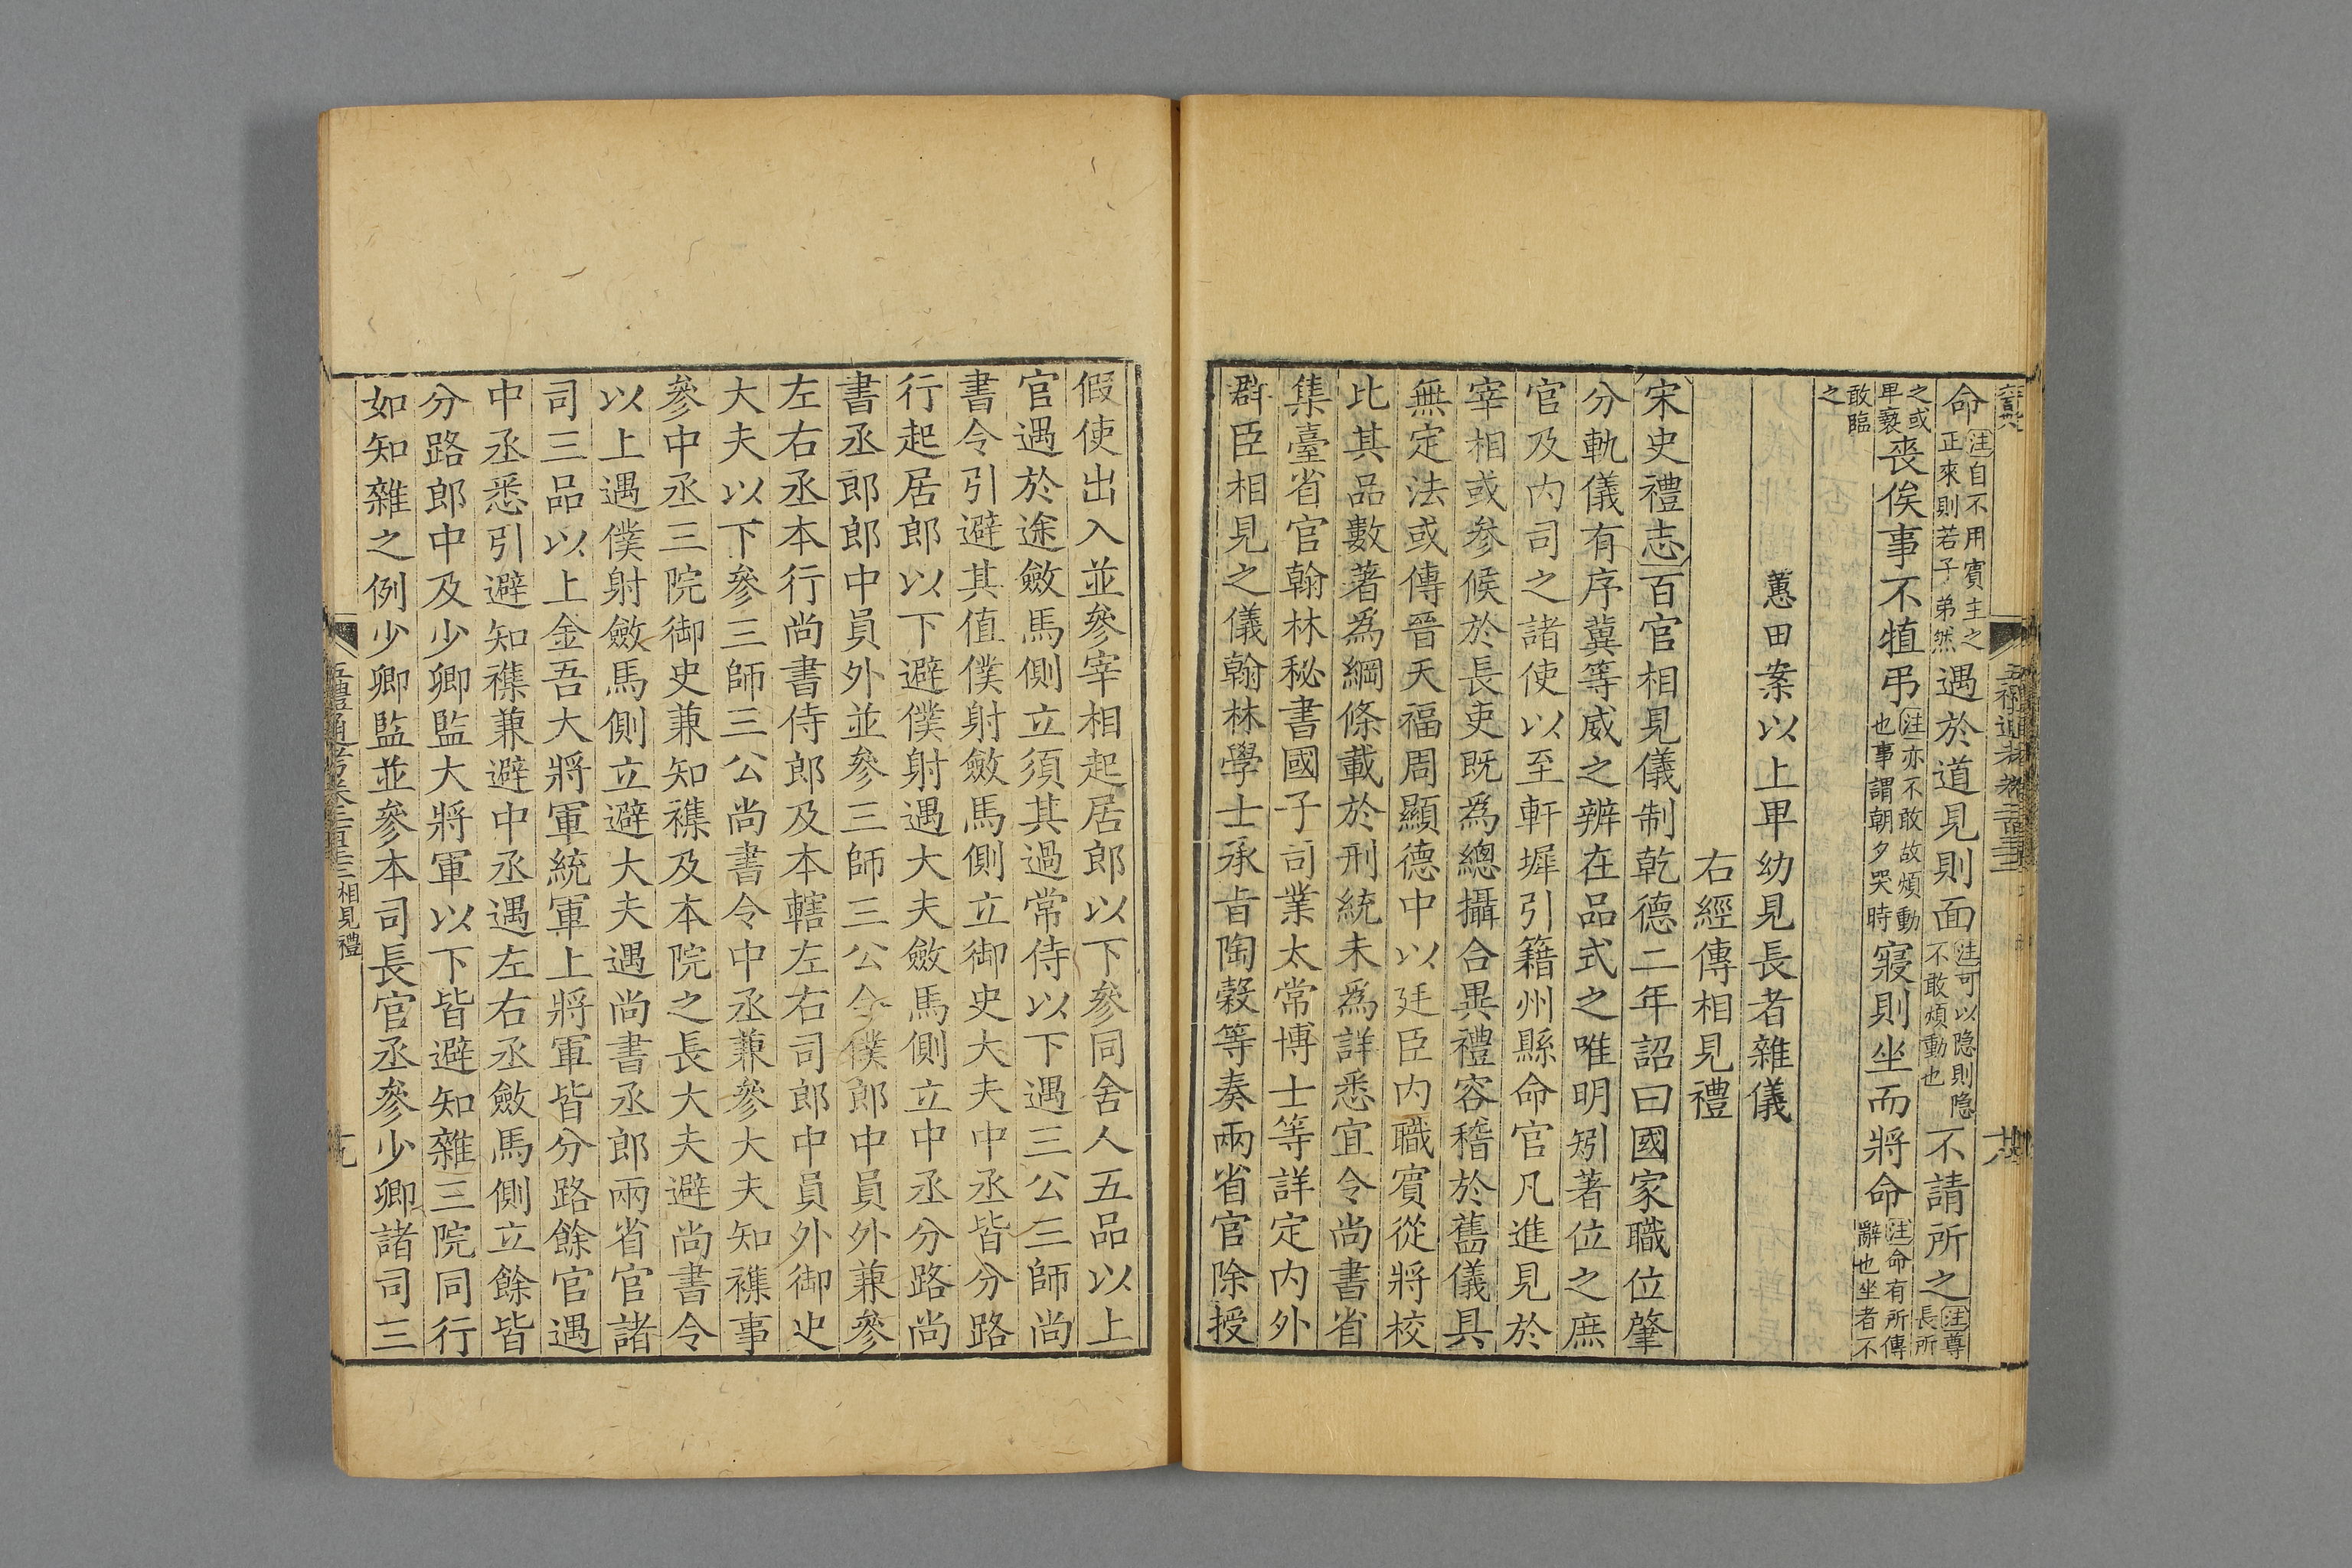 命[注]自不用賓主之正來則若子弟然遇於道見則面[注]可以隐則隐不敢煩動也不請所之[注]尊長所
之或卑䙝喪俟事不犆弔[注]亦不敢故煩動也事謂朝夕哭時寢則坐而將命[注]命有所傳辭也坐者不
敢臨之
蕙田案以上卑幼見長者雜儀
右經傳相見禮
宋史禮志百官相見儀制乾德二年詔曰國家職位肇
分軌儀有序冀等威之辨在品式之唯明矧著位之庶
官及内司之諸使以至軒墀引籍州縣命官凡進見於
宰相或参候於長吏既為總攝合異禮容稽於舊儀具
無定法或傳晉天福周顯德中以廷臣内職賓從將校
比其品數著為綱條載於刑統未為詳悉宜令尚書省
集臺省官翰林秘書國子司業太常博士等詳定内外
群臣相見之儀翰林學士承旨陶穀等奏兩省官除授
假使出入並參宰相起居郎以下參同舍人五品以上
官遇於途斂馬側立須其過常侍以下遇三公三師尚
書令引避其值僕射斂馬側立御史大夫中丞皆分路
行起居郎以下避僕射遇大夫斂馬側立中丞分路尚
書丞郎郎中員外並參三師三公令僕郎中員外兼參
左右丞本行尚書侍郎及本轄左右司郎中員外御史
大夫以下參三師三公尚書令中丞兼參大夫知襍事
參中丞三院御史兼知襍及本院之長大夫避尚書令
以上遇僕射斂馬側立避大夫遇尚書丞郎兩省官諸
司三品以上金吾大將軍統軍上將軍皆分路餘官遇
中丞悉引避知襍兼避中丞遇左右丞斂馬側立餘皆
分路郎中及少卿監大將軍以下皆避知雜三院同行
如知雜之例少卿監並參本司長官丞參少卿諸司三
五禮通考卷二百三十二 相見禮